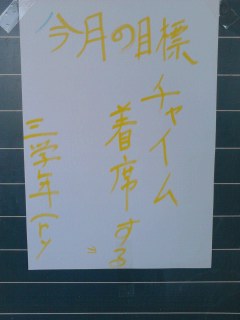 今月の目標
チャイム
着席する
三学年